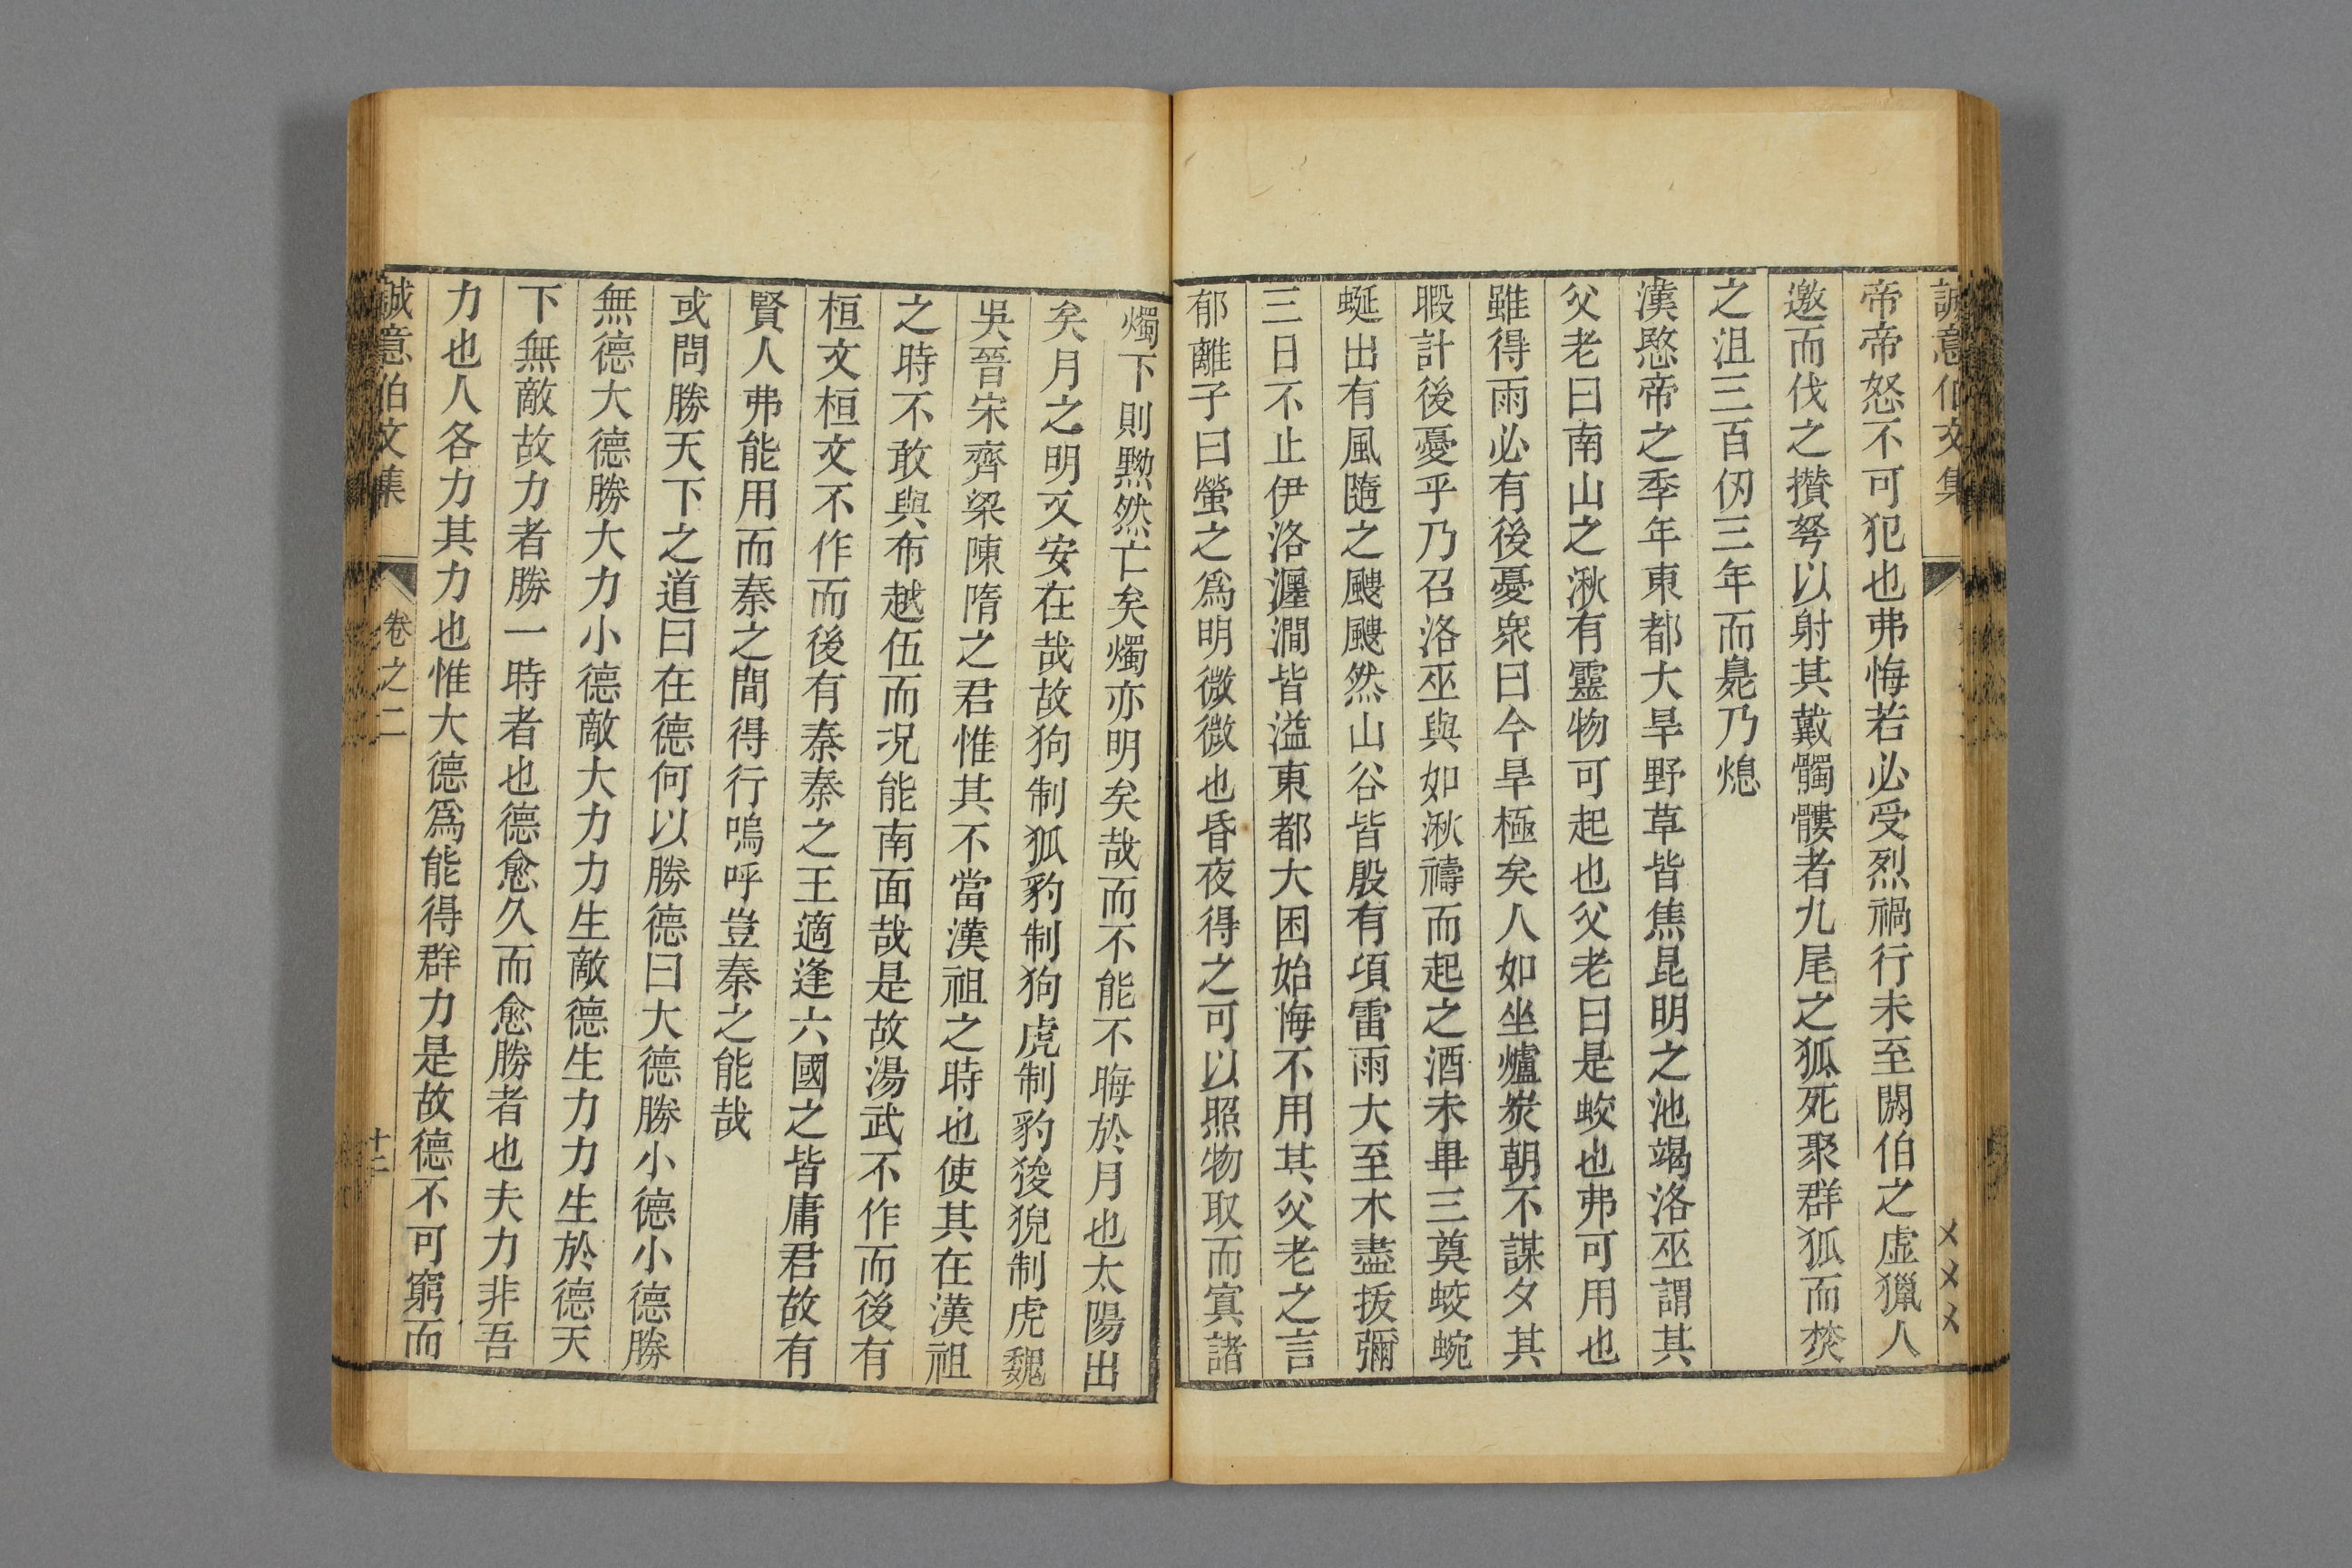 誠意伯文集
帝帝怒不可犯也弗悔若必受烈禍行未至閼伯之虛獵人
邀而伐之攢弩以射其戴髑髏者九尾之狐死聚群狐而焚
之沮三百仞三年而臭乃熄
漢愍帝之季年東都大旱野草皆焦昆明之池竭洛巫謂其
父老曰南山之湫有靈物可起也父老曰是蛟也弗可用也
雖得雨必有後憂衆曰今旱極矣人如坐爐炭朝不謀夕其
暇計後憂乎乃召洛巫與如湫禱而起之酒未畢三奠蛟蜿
蜒出有風隨之颼颼然山谷皆殷有頃雷雨大至木盡拔彌
三日不止伊洛瀍澗皆溢東都大困始悔不用其父老之言
郁離子曰螢之為明微微也昏夜得之可以照物取而寘諸
燭下則黝然亡矣燭亦明矣哉而不能不晦於月也太陽出
矣月之明又安在哉故狗制狐豹制狗虎制豹狻猊制虎魏
吳晉宋齊梁陳隋之君惟其不當漢祖之時也使其在漢祖
之時不敢與布越伍而况能南面哉是故湯武不作而後有
桓文桓文不作而後有秦秦之王適逢六國之皆庸君故有
賢人弗能用而秦之間得行嗚呼豈秦之能哉
或問勝天下之道曰在德何以勝德曰大德勝小德小德勝
無德大德勝大力小德敵大力力生敵德生力力生於德天
下無敵故力者勝一時者也德愈久而愈勝者也夫力非吾
力也人各力其力也惟大德爲能得群力是故德不可窮而
誠意伯文集
卷之二
十二